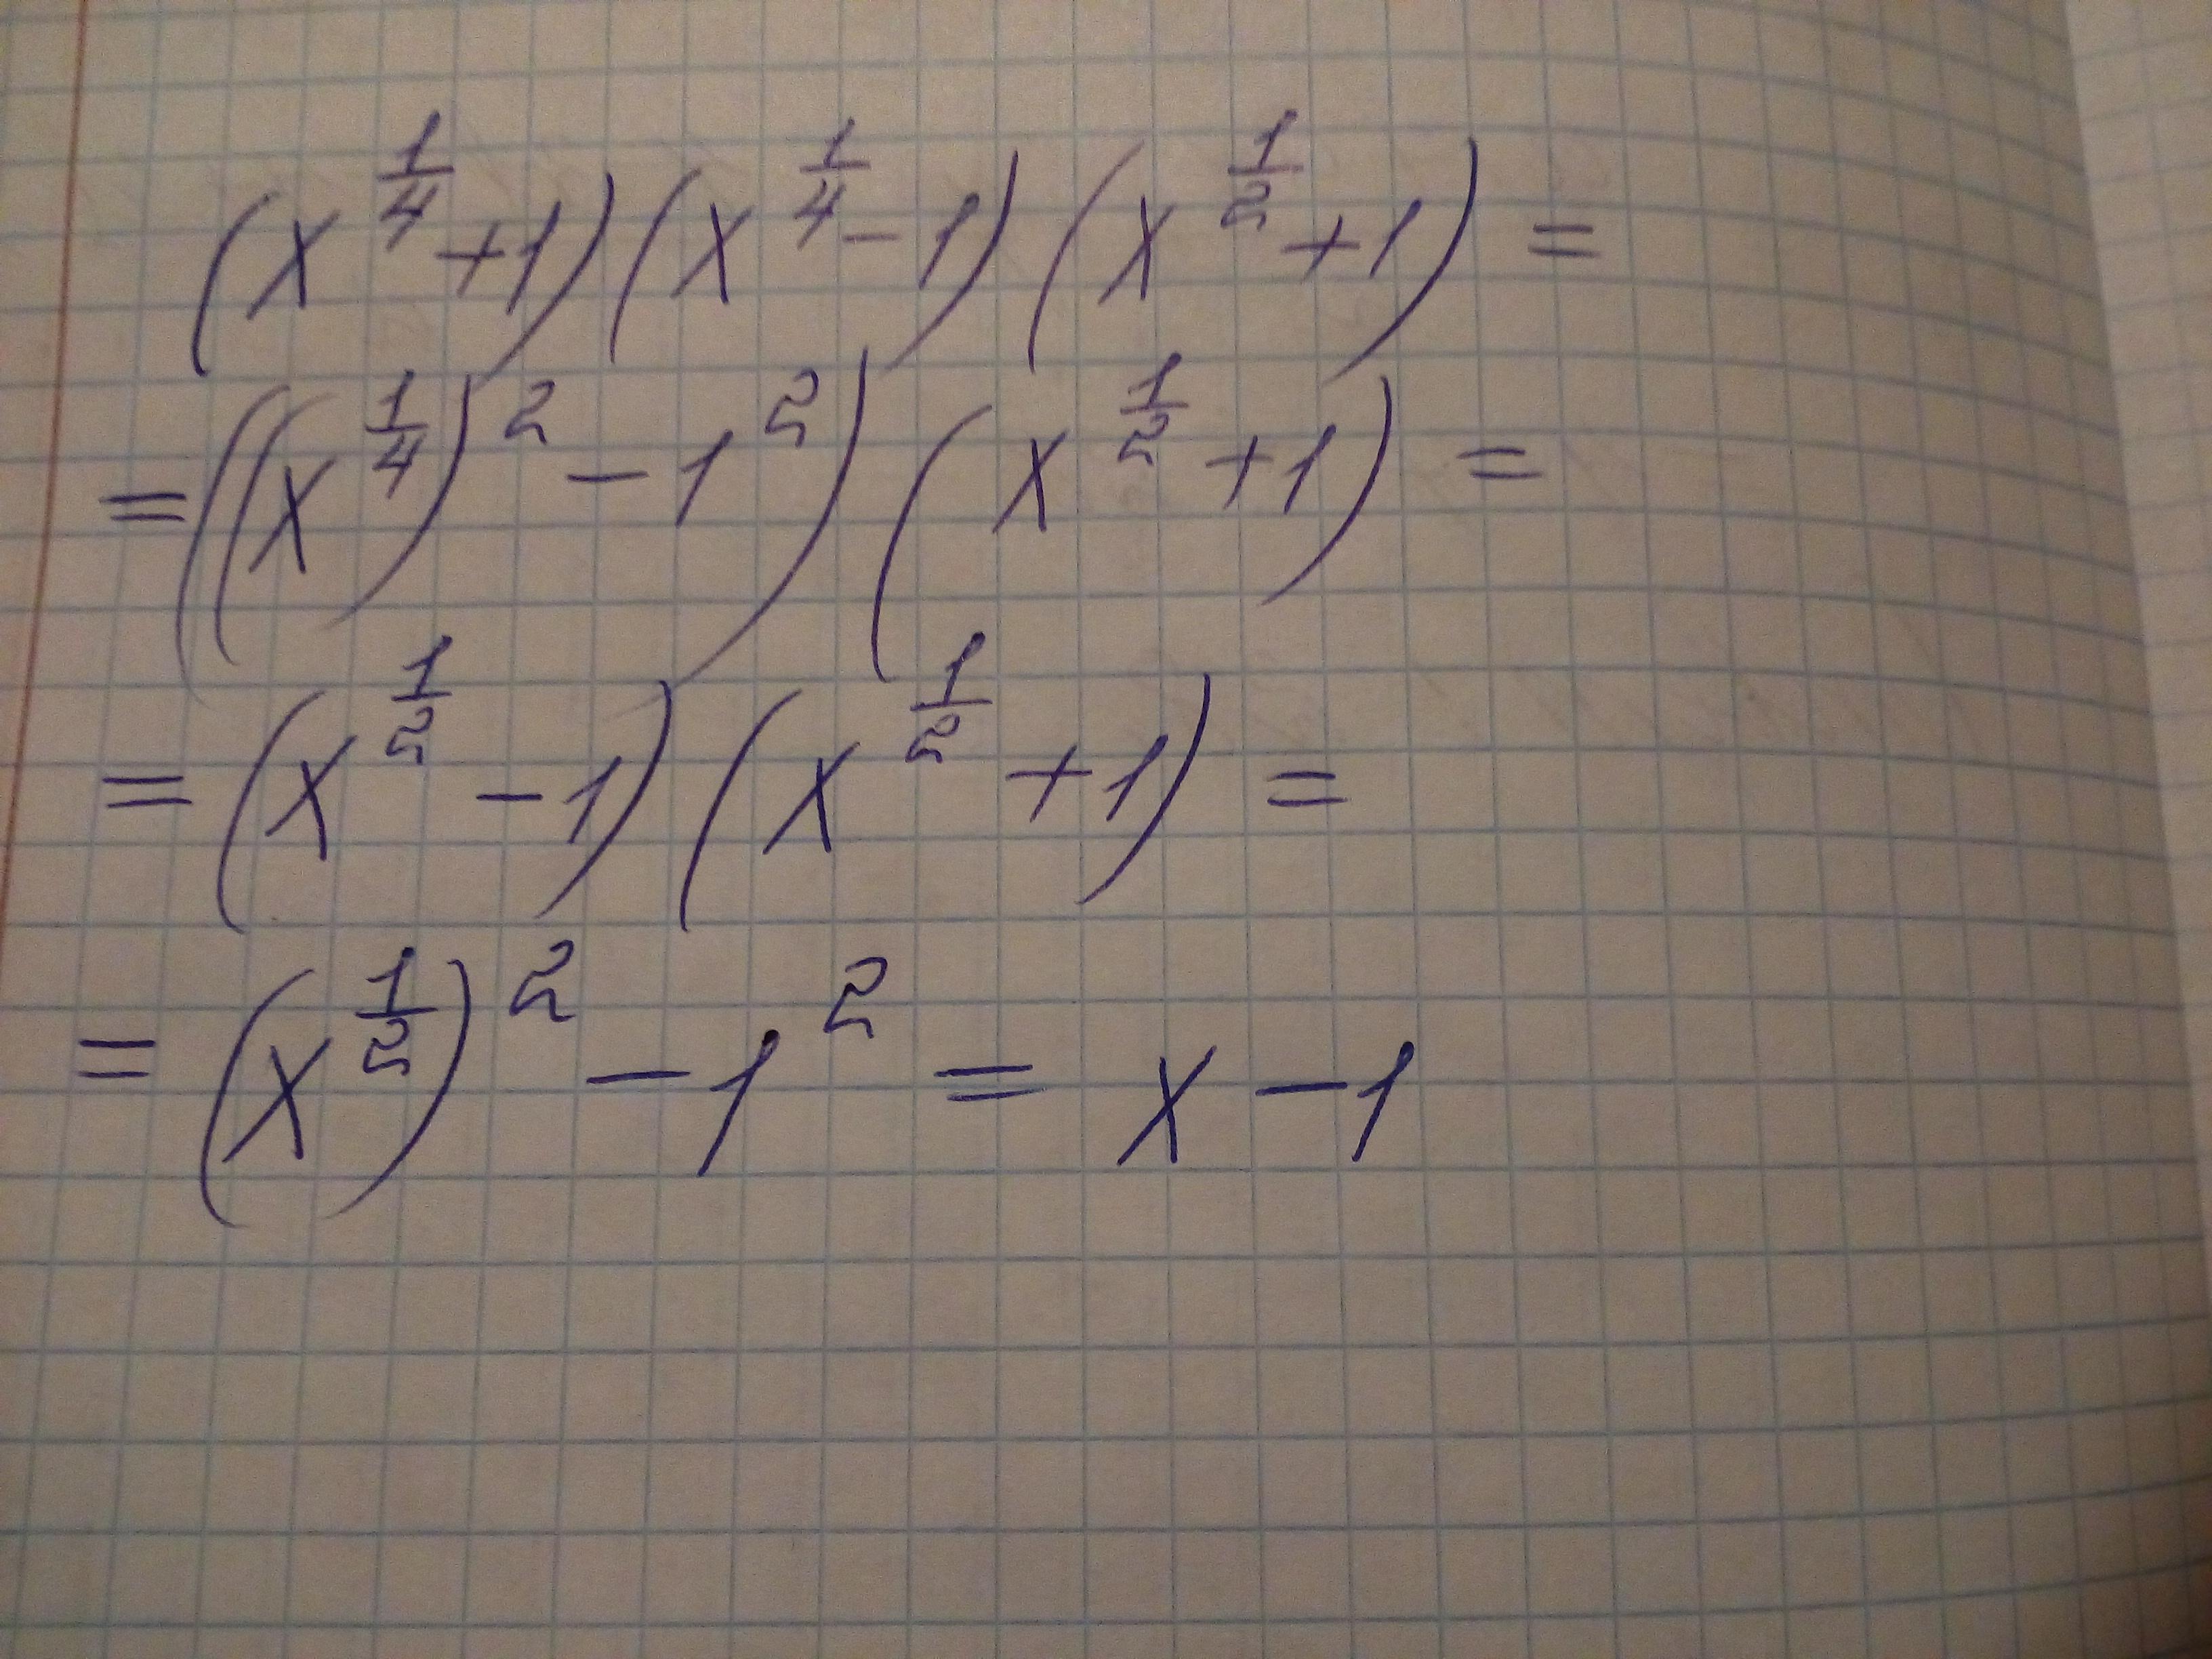 (x^{\frac{1}{4}}+1)(x^{\frac{1}{4}}-1)(x^{\frac{1}{2}}+1)=
=((x^{\frac{1}{4}})^2-1^2)(x^{\frac{1}{2}}+1)=
=(x^{\frac{1}{2}}-1)(x^{\frac{1}{2}}+1)=
=(x^{\frac{1}{2}})^2-1^2=x-1